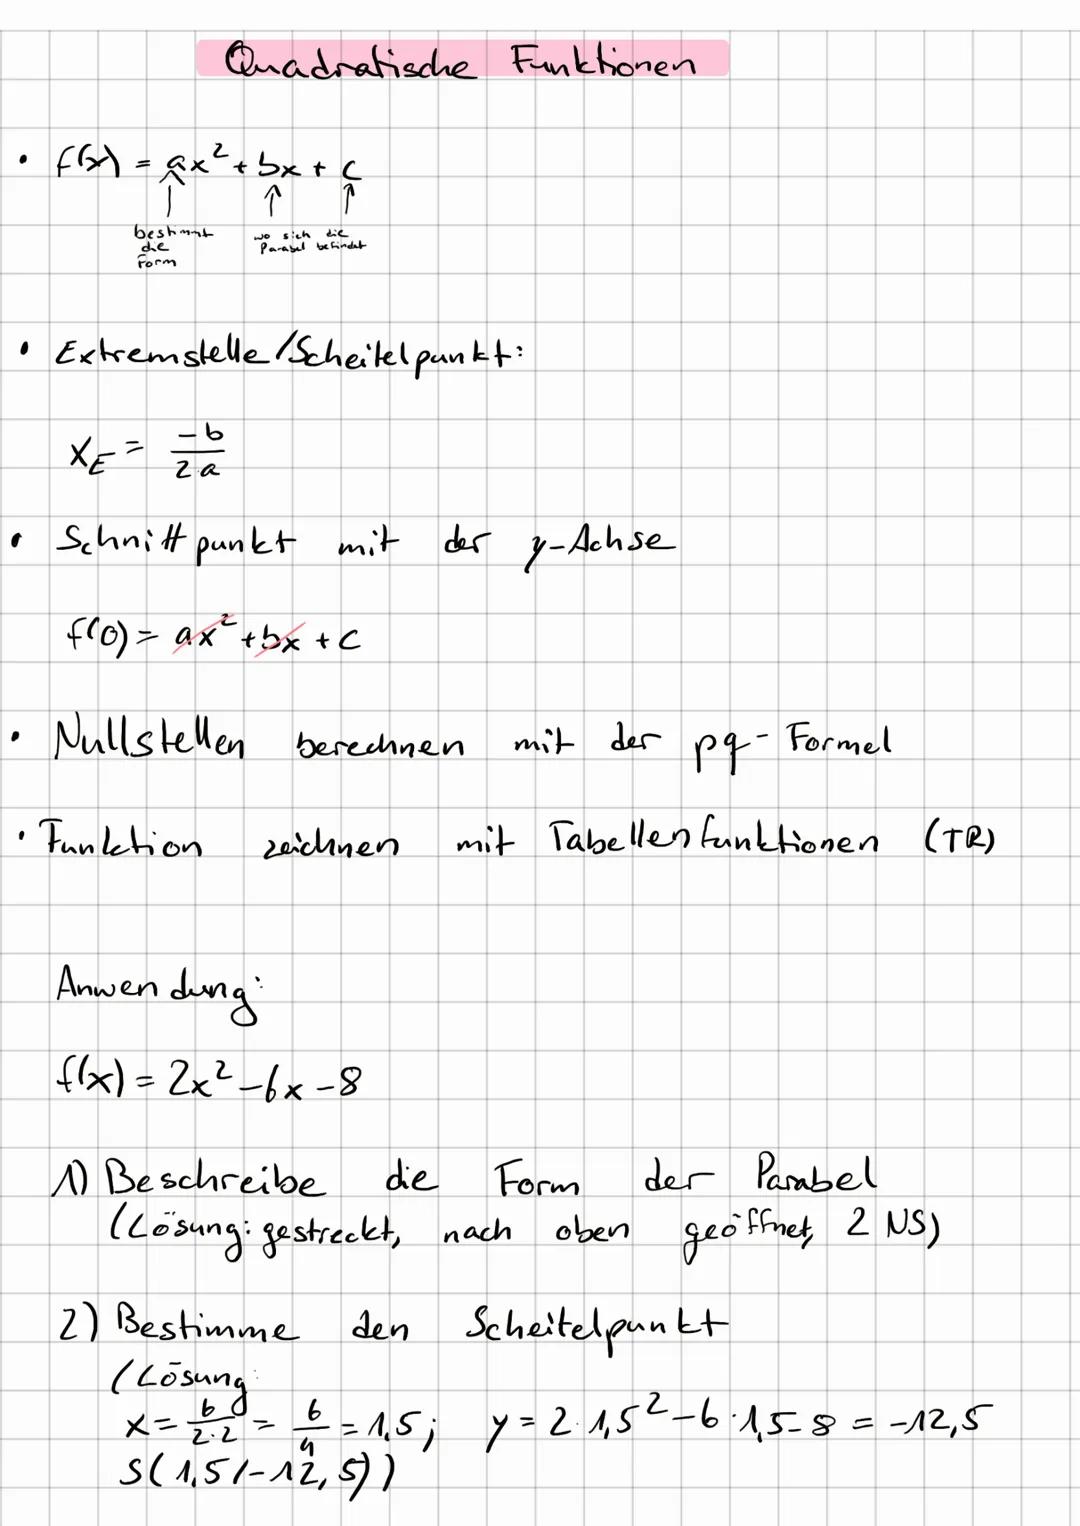 Quadratische Funktionen
• f(x) = ax² + bx + c
bestimmt die Form
wo sich die Parabel befindet
• Extremstelle/Scheitelpunkt:
x_E = -b / 2·a
• Schnittpunkt mit der y-Achse
f(0) = ax² + bx + c
• Nullstellen berechnen mit der pq-Formel
• Funktion zeichnen mit Tabellenfunktionen (TR)
Anwendung:
f(x) = 2x² - 6x - 8
1) Beschreibe die Form der Parabel
(Lösung: gestreckt, nach oben geöffnet, 2 NS)
2) Bestimme den Scheitelpunkt
(Lösung:
x = 6/2·2 = 6/4 = 1,5; y = 2·1,5² - 6·1,5 - 8 = -12,5
S(1,5/-12,5))